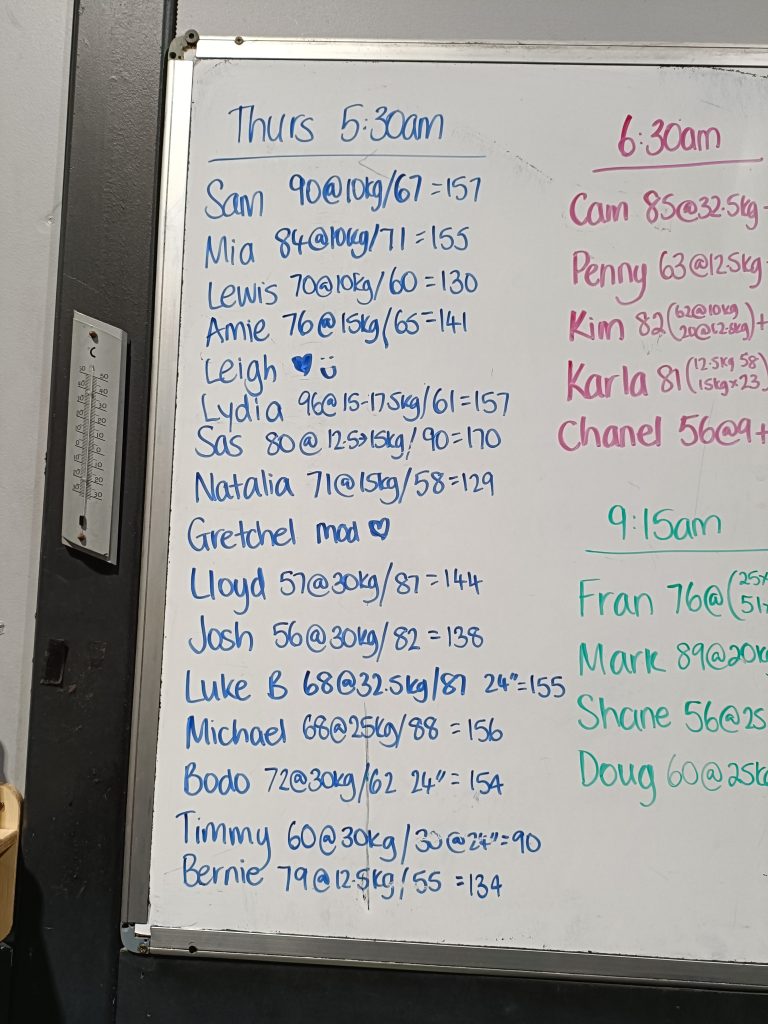 Thurs 5:30am
Sam 90@10kg/67 =157
Mia 84@10kg/71 =155
Lewis 70@10kg/60 =130
Amie 76@15kg/65=141
Leigh ♥ ü
Lydia 96@15-17.5kg/61=157
Sas 80@ 12.5→15kg/90=170
Natalia 71@15kg/58=129
Gretchel mod ♡
Lloyd 57@30kg/87=144
Josh 56@30kg/82 =138
Luke B 68@32.5kg/87 24"=155
Michael 68@25kg/88 =156
Bodo 72@30kg/62 24" = 154
Timmy 60@30kg/30@24"=90
Bernie 79@12.5kg/55 =134
6:30am
Cam 85@32.5kg
Penny 63@12.5kg
Kim 82(62@10kg
20@12.5kg)+
Karla 81(12.5kg 58
15kg×23)
Chanel 56@9+
9:15am
Fran 76@(25
51
Mark 89@20k
Shane 56@25
Doug 60@25k
°C